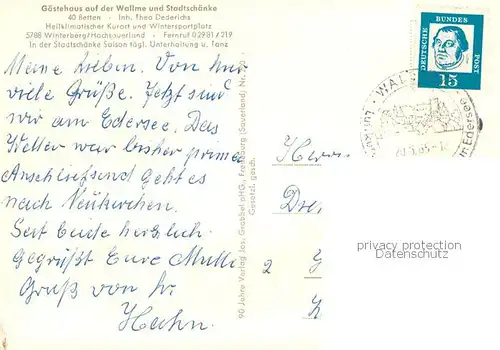 Gästehaus auf der Wallme und Stadtschänke
40 Betten - Inh. Theo Dederichs
Heilklimatischer Kurort und Wintersportplatz
5788 Winterberg/Hochsauerland - Fernruf 02981/219
In der Stadtschänke Saison tägl. Unterhaltung u. Tanz
Meine Lieben. Von hier
viele Grüße. Jetzt sind
wir am Edersee. Das
Wetter war bisher prima
Anschließend geht es
nach Neukirchen.
Seit beide herzlich
Gegrüßt Eure Mutti
Gruß von
Hahn.
90 Jahre Verlag Jos. Grobbel oHG., Fredeburg (Sauerland)
Gesetzl. gesch.
DEUTSCHE BUNDES POST
15
WAL
Edersee
Herrn
2
privacy protection
AnsichtskartenVersand.com